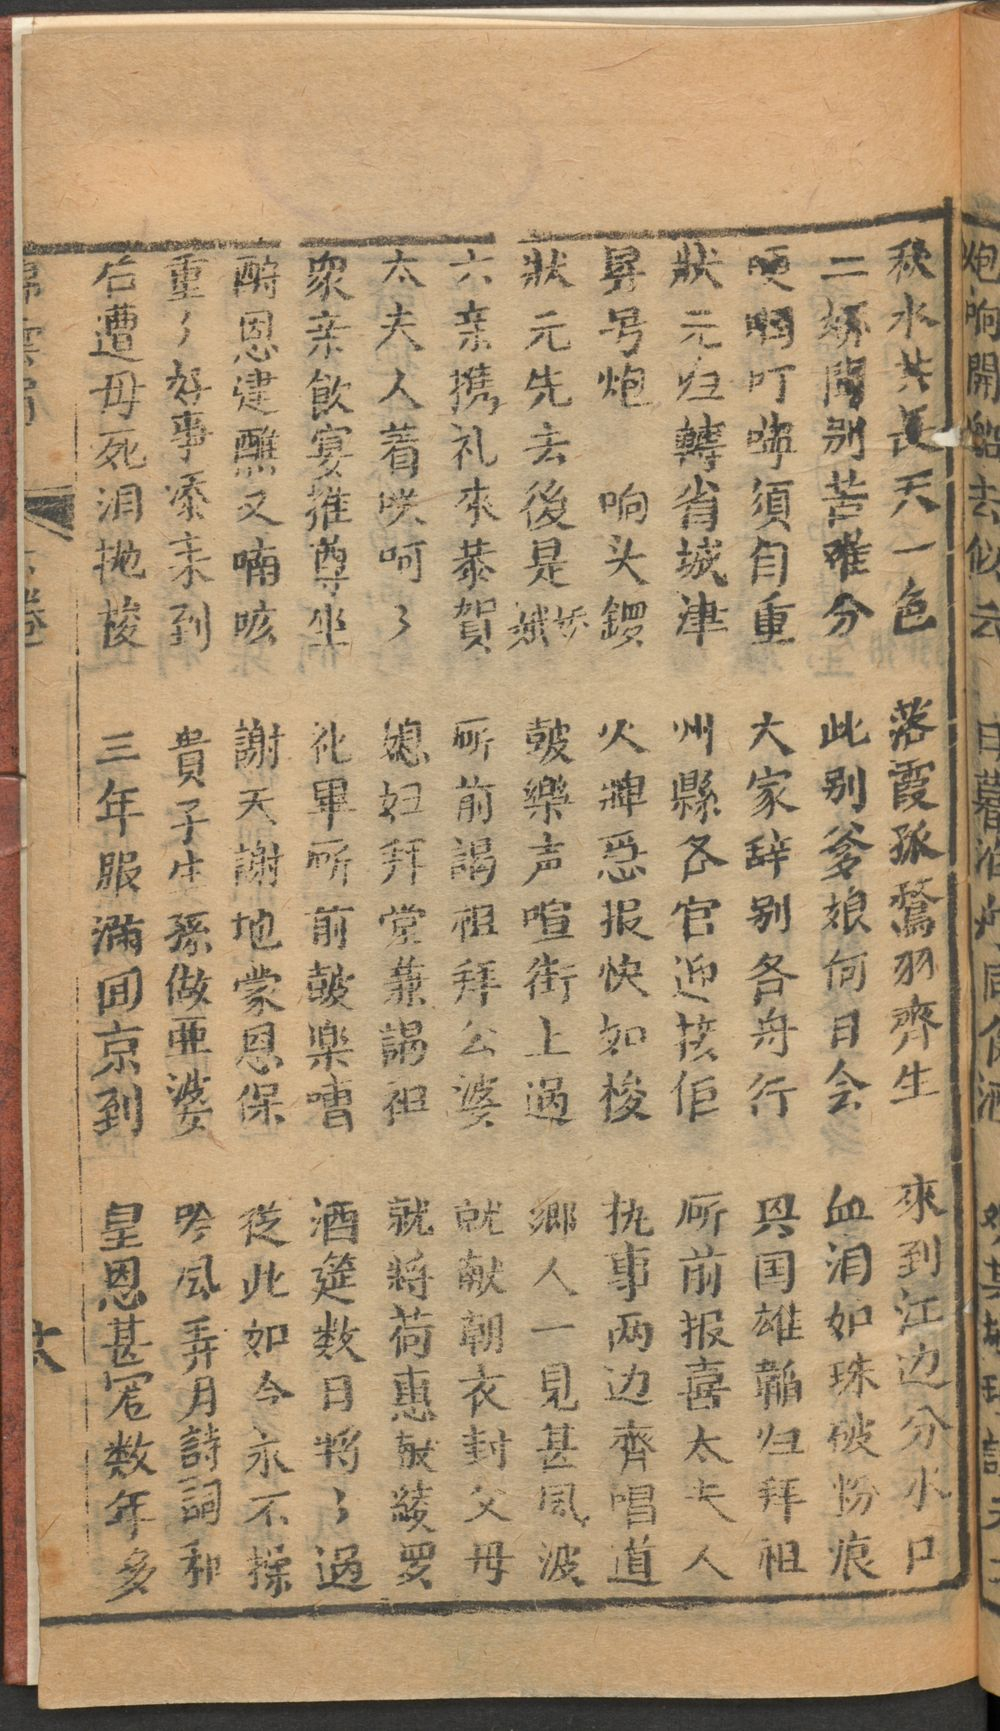 秋水共長天一色　落霞孤鶩羽齊生　來到江边分水口
二娇闻别苦难分　此别爹娘何日会　血泪如珠破粉痕
哽咽叮嚀須自重　大家辞别各舟行　具国雄韜归拜祖
狀元归轉省城津　州縣各官迎接佢　所前报喜太夫人
昇号炮　响头鑼　火牌惡报快如梭　执事两边齊唱道
狀元先去後是娇娥　皷樂声喧街上過　鄉人一見甚風波
六亲携礼來恭賀　所前謁祖拜公婆　就献朝衣封父母
太夫人着咲呵々　媳妇拜堂兼謁祖　就將荷惠献綾罗
衆亲飲宴推尊坐　礼畢所前皷楽嘈　酒筵数日將々過
酧恩建醮又喃咳　謝天謝地蒙恩保　從此如今永不操
重々好事添来到　貴子生孫做亜婆　吟风弄月詩詞和
后遭毋死泪抛梭　三年服滿囬京到　皇恩甚宠数年多
卷
六
炮响開船去似云　日暮